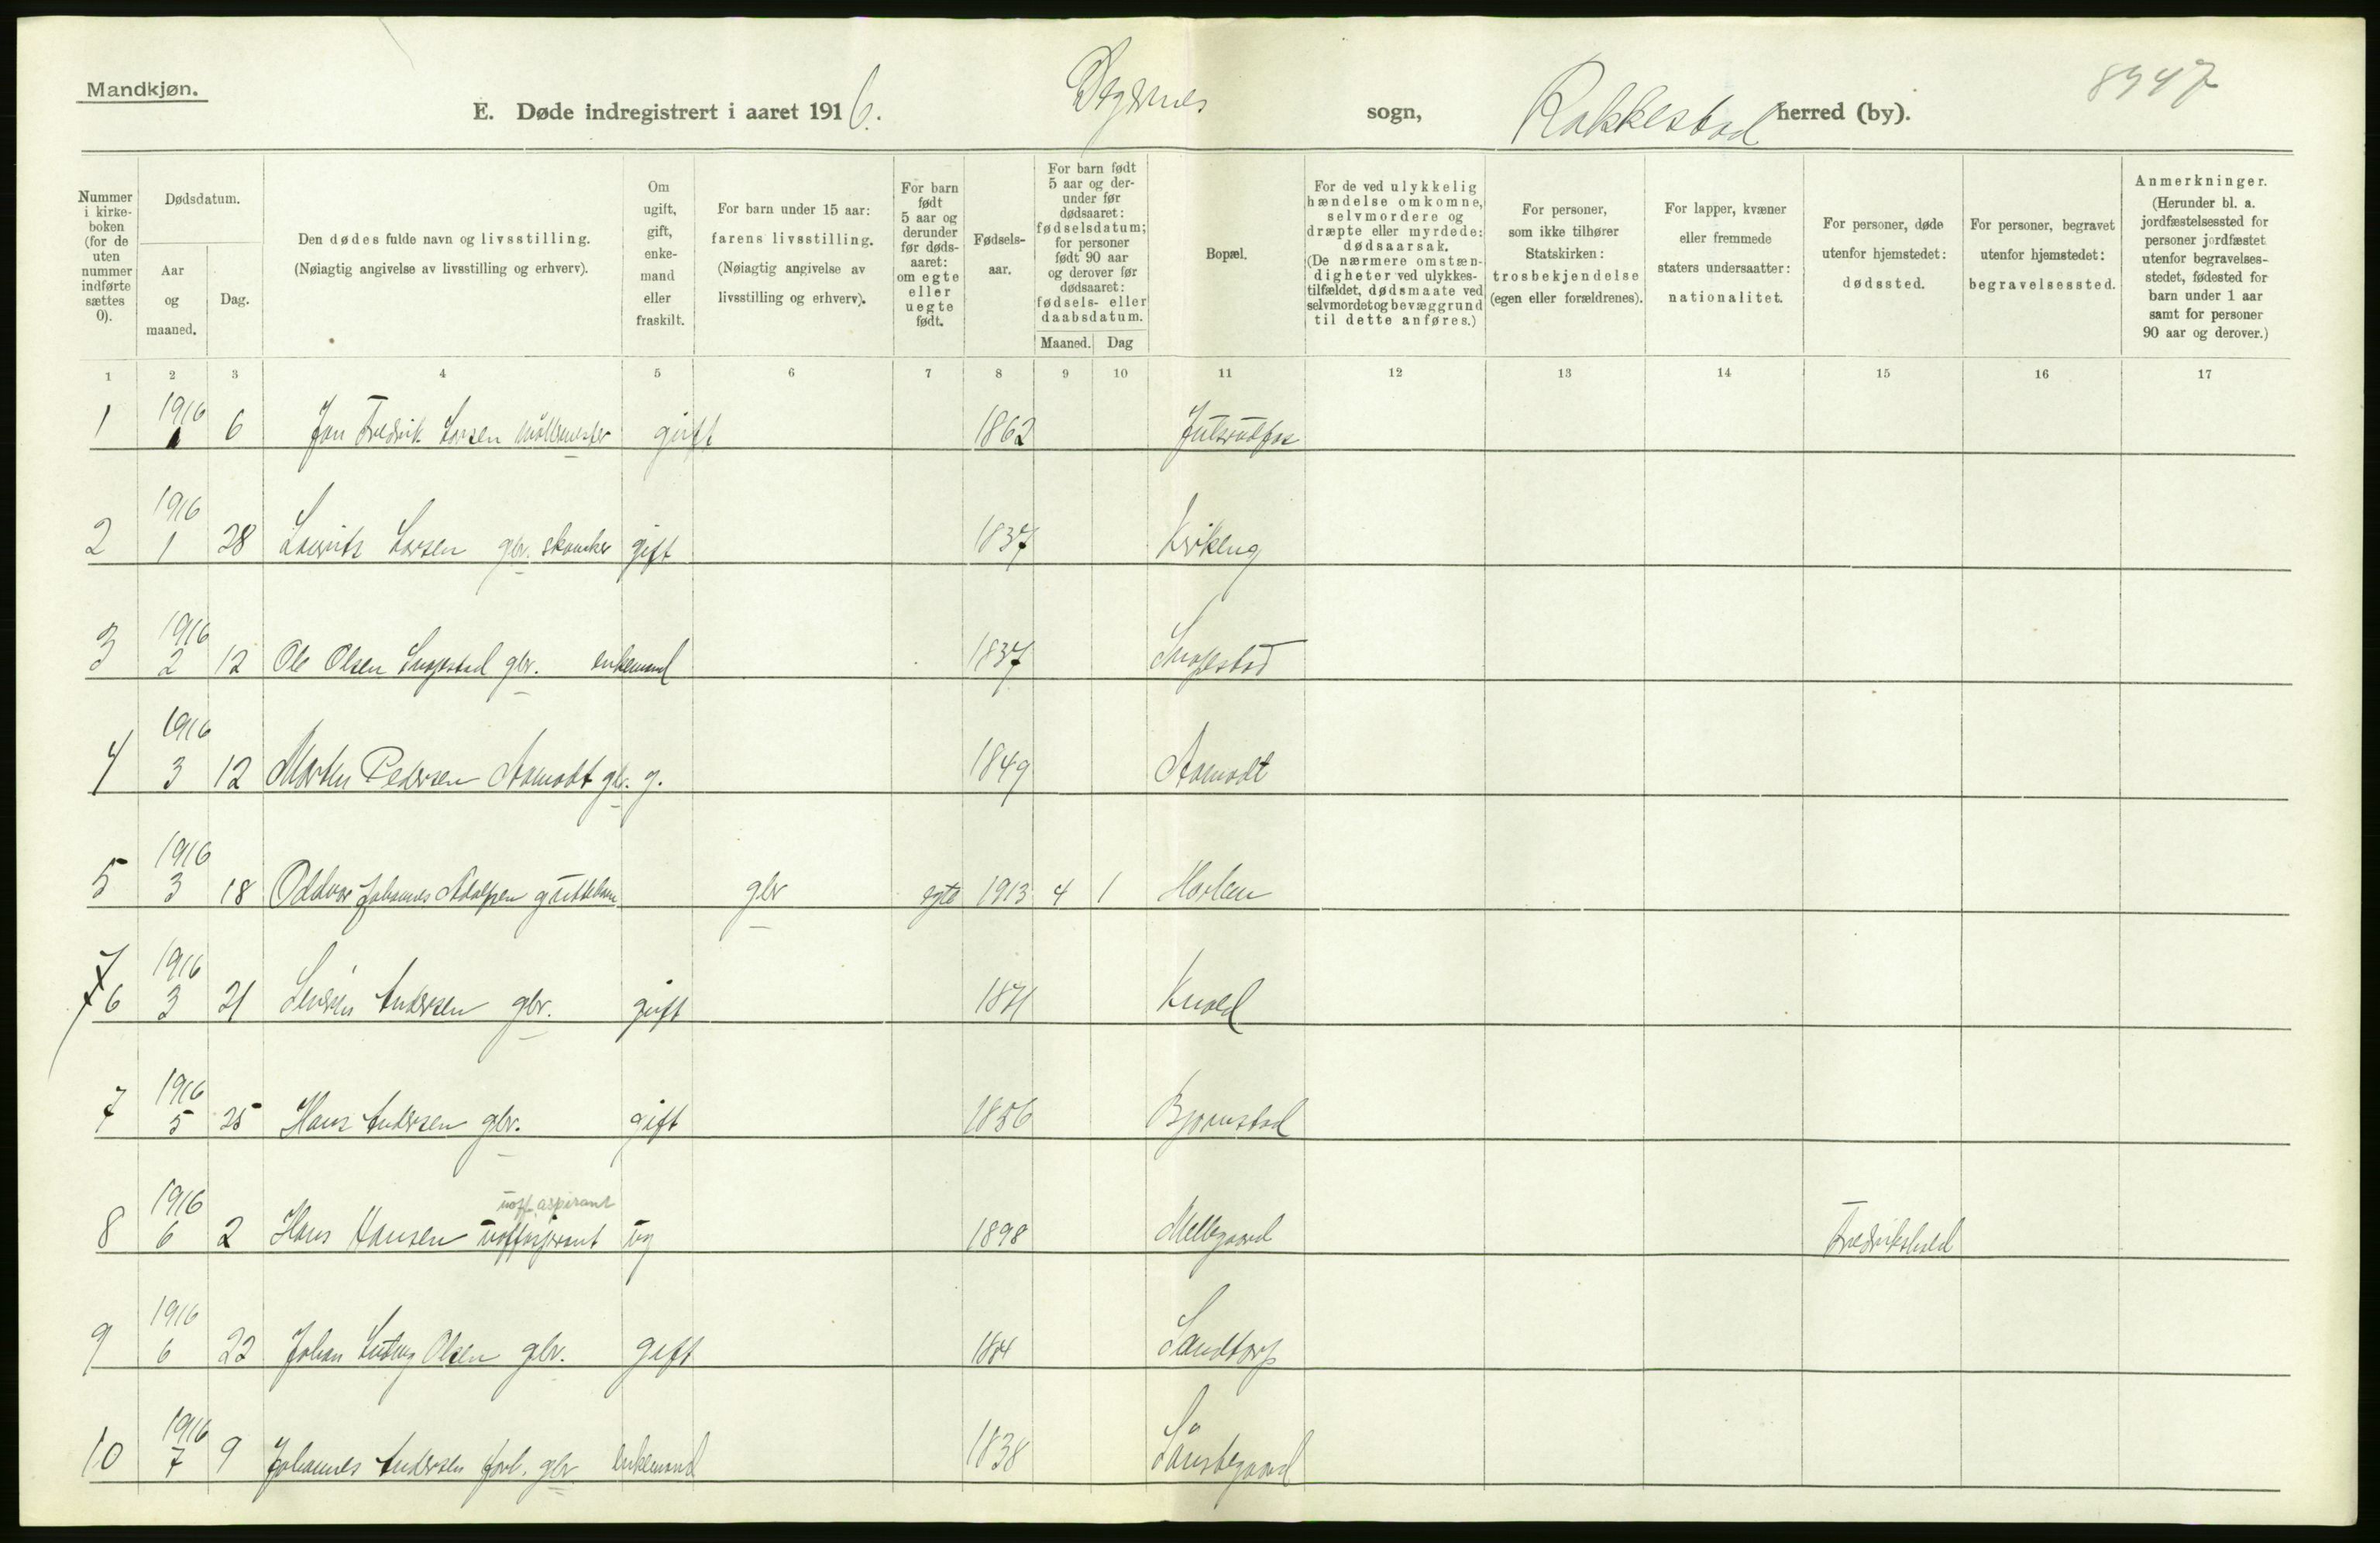 Mandkjøn.
E. Døde indregistrert i aaret 1916. Degernes sogn, Rakkestad herred (by). 8947
Nummer i kirkeboken (for de uten nummer indførte sættes 0).
Dødsdatum.
Aar og maaned.
Dag.
Den dødes fulde navn og livsstilling.
(Nøiagtig angivelse av livsstilling og erhverv).
Om ugift, gift, enkemand eller fraskilt.
For barn under 15 aar: farens livsstilling. (Nøiagtig angivelse av livsstilling og erhverv).
For barn født 5 aar og derunder før dødsaaret: om egte eller uegte født.
Fødselsaar.
For barn født 5 aar og derunder før dødsaaret: fødselsdatum; for personer født 90 aar og derover før dødsaaret: fødsels- eller daabsdatum.
Maaned. Dag
Bopæl.
For de ved ulykkelig hændelse omkomne, selvmordere og dræpte eller myrdede: dødsaarsak. (De nærmere omstændigheter ved ulykkestilfældet, dødsmaate ved selvmordet og bevæggrund til dette anføres.)
For personer, som ikke tilhører Statskirken: trosbekjendelse (egen eller forældrenes).
For lapper, kvæner eller fremmede staters undersaatter: nationalitet.
For personer, døde utenfor hjemstedet: dødssted.
For personer, begravet utenfor hjemstedet: begravelsessted.
Anmerkninger. (Herunder bl. a. jordfæstelsessted for personer jordfæstet utenfor begravelsesstedet, fødested for barn under 1 aar samt for personer 90 aar og derover.)
1 2 3 4 5 6 7 8 9 10 11 12 13 14 15 16 17
1 1916 1 6 Jon Fredrik Larsen møllemester gift 1862
2 1916 1 28 Laurits Larsen gbr. skomaker gift 1837 Kirkeng
3 1916 2 12 Ole Olsen gbr. enkemand 1837
4 1916 3 12 Martin Pedersen Aamodt gbr. g. 1849 Aamodt
5 1916 3 18 Oddvar Johannes Adolfsen guttebarn gbr egte 1913 4 1 Harlem
6 1916 3 21 Severin Andersen gbr. gift 1871 Knold
7 1916 5 25 Hans Andersen gbr. gift 1856 Bjørnstad
uoff.aspirant
8 1916 6 2 Hans Hansen uoffaspirant ug 1898 Mellegaard Fredrikshald
9 1916 6 22 Johan Ludvig Olsen gbr. gift Sandtorp
10 1916 7 9 Johannes Andersen forh. gbr enkemand 1838